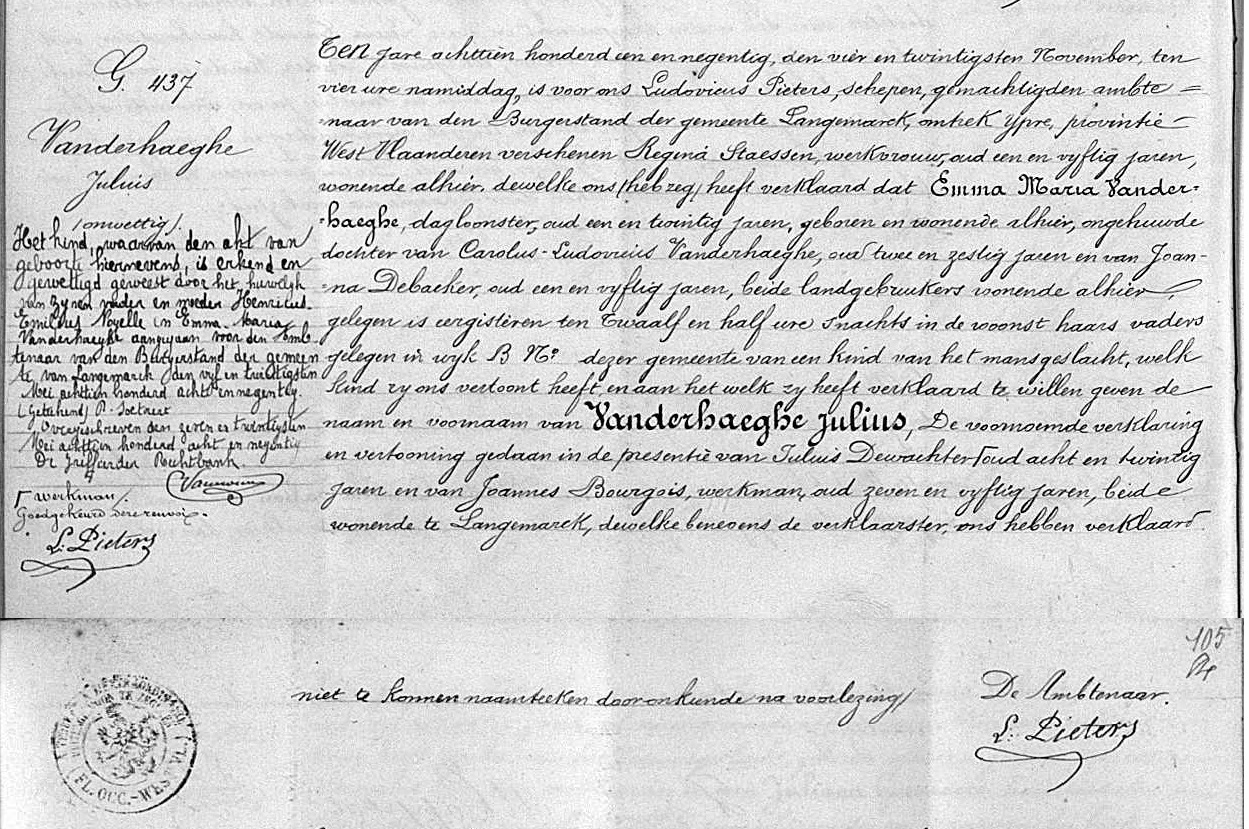 G. 437
Vanderhaeghe
Julius
(onwettig).
Het kind, waarvan den akt van
geboorte hiernevens, is erkend en
gewettigd geweest door het huwelyk
van zynen vader en moeder Henricus
Emilius Noyelle en Emma-Maria
Vanderhaeghe aangegaan voor den Amb-
tenaar van den Burgerstand der gemeen
te van Langemarck den vyf en twintigsten
Mei achttien honderd acht en negentig.
(Geteekend) P.
Overgeschreven den zeven en twintigsten
Mei achttien honderd acht en negentig
De Griffier der Rechtbank.
werkman.
Goedgekeurd deze renvoi.
L. Pieters
Ten jare achttien honderd een en negentig, den vier en twintigsten November, ten
vier ure namiddag, is voor ons Ludovicus Pieters, schepen, gemachtigden ambte=
=naar van den Burgerstand der gemeente Langemarck, omtrek Ypre, provintie
West Vlaanderen verschenen Regina Staessen, werkvrouw, oud een en vyftig jaren,
wonende alhier, dewelke ons (heb zeg) heeft verklaard dat Emma Maria Vander-
-haeghe, dagloonster, oud een en twintig jaren, geboren en wonende alhier, ongehuwde
dochter van Carolus-Ludovicus Vanderhaeghe, oud twee en zestig jaren en van Joan-
-na Debacker, oud een en vyftig jaren, beide landgebruikers wonende alhier,
gelegen is eergisteren ten twaalf en half ure snachts in de woonst haars vaders
gelegen in wyk B No dezer gemeente van een kind van het mansgeslacht, welk
kind zy ons vertoont heeft, en aan het welk zy heeft verklaard te willen geven de
naam en voornaam van Vanderhaeghe Julius, De voornoemde verklaring
en vertooning gedaan in de presentie van Julius Dewachter oud acht en twintig
jaren en van Joannes Bourgois, werkman, oud zeven en vyftig jaren, beide
wonende te Langemarck, dewelke benevens de verklaarster, ons hebben verklaard
105
niet te konnen naamteeken door onkunde na voorlezing
De Ambtenaar.
L. Pieters
FL. OCC.-WEST VL.